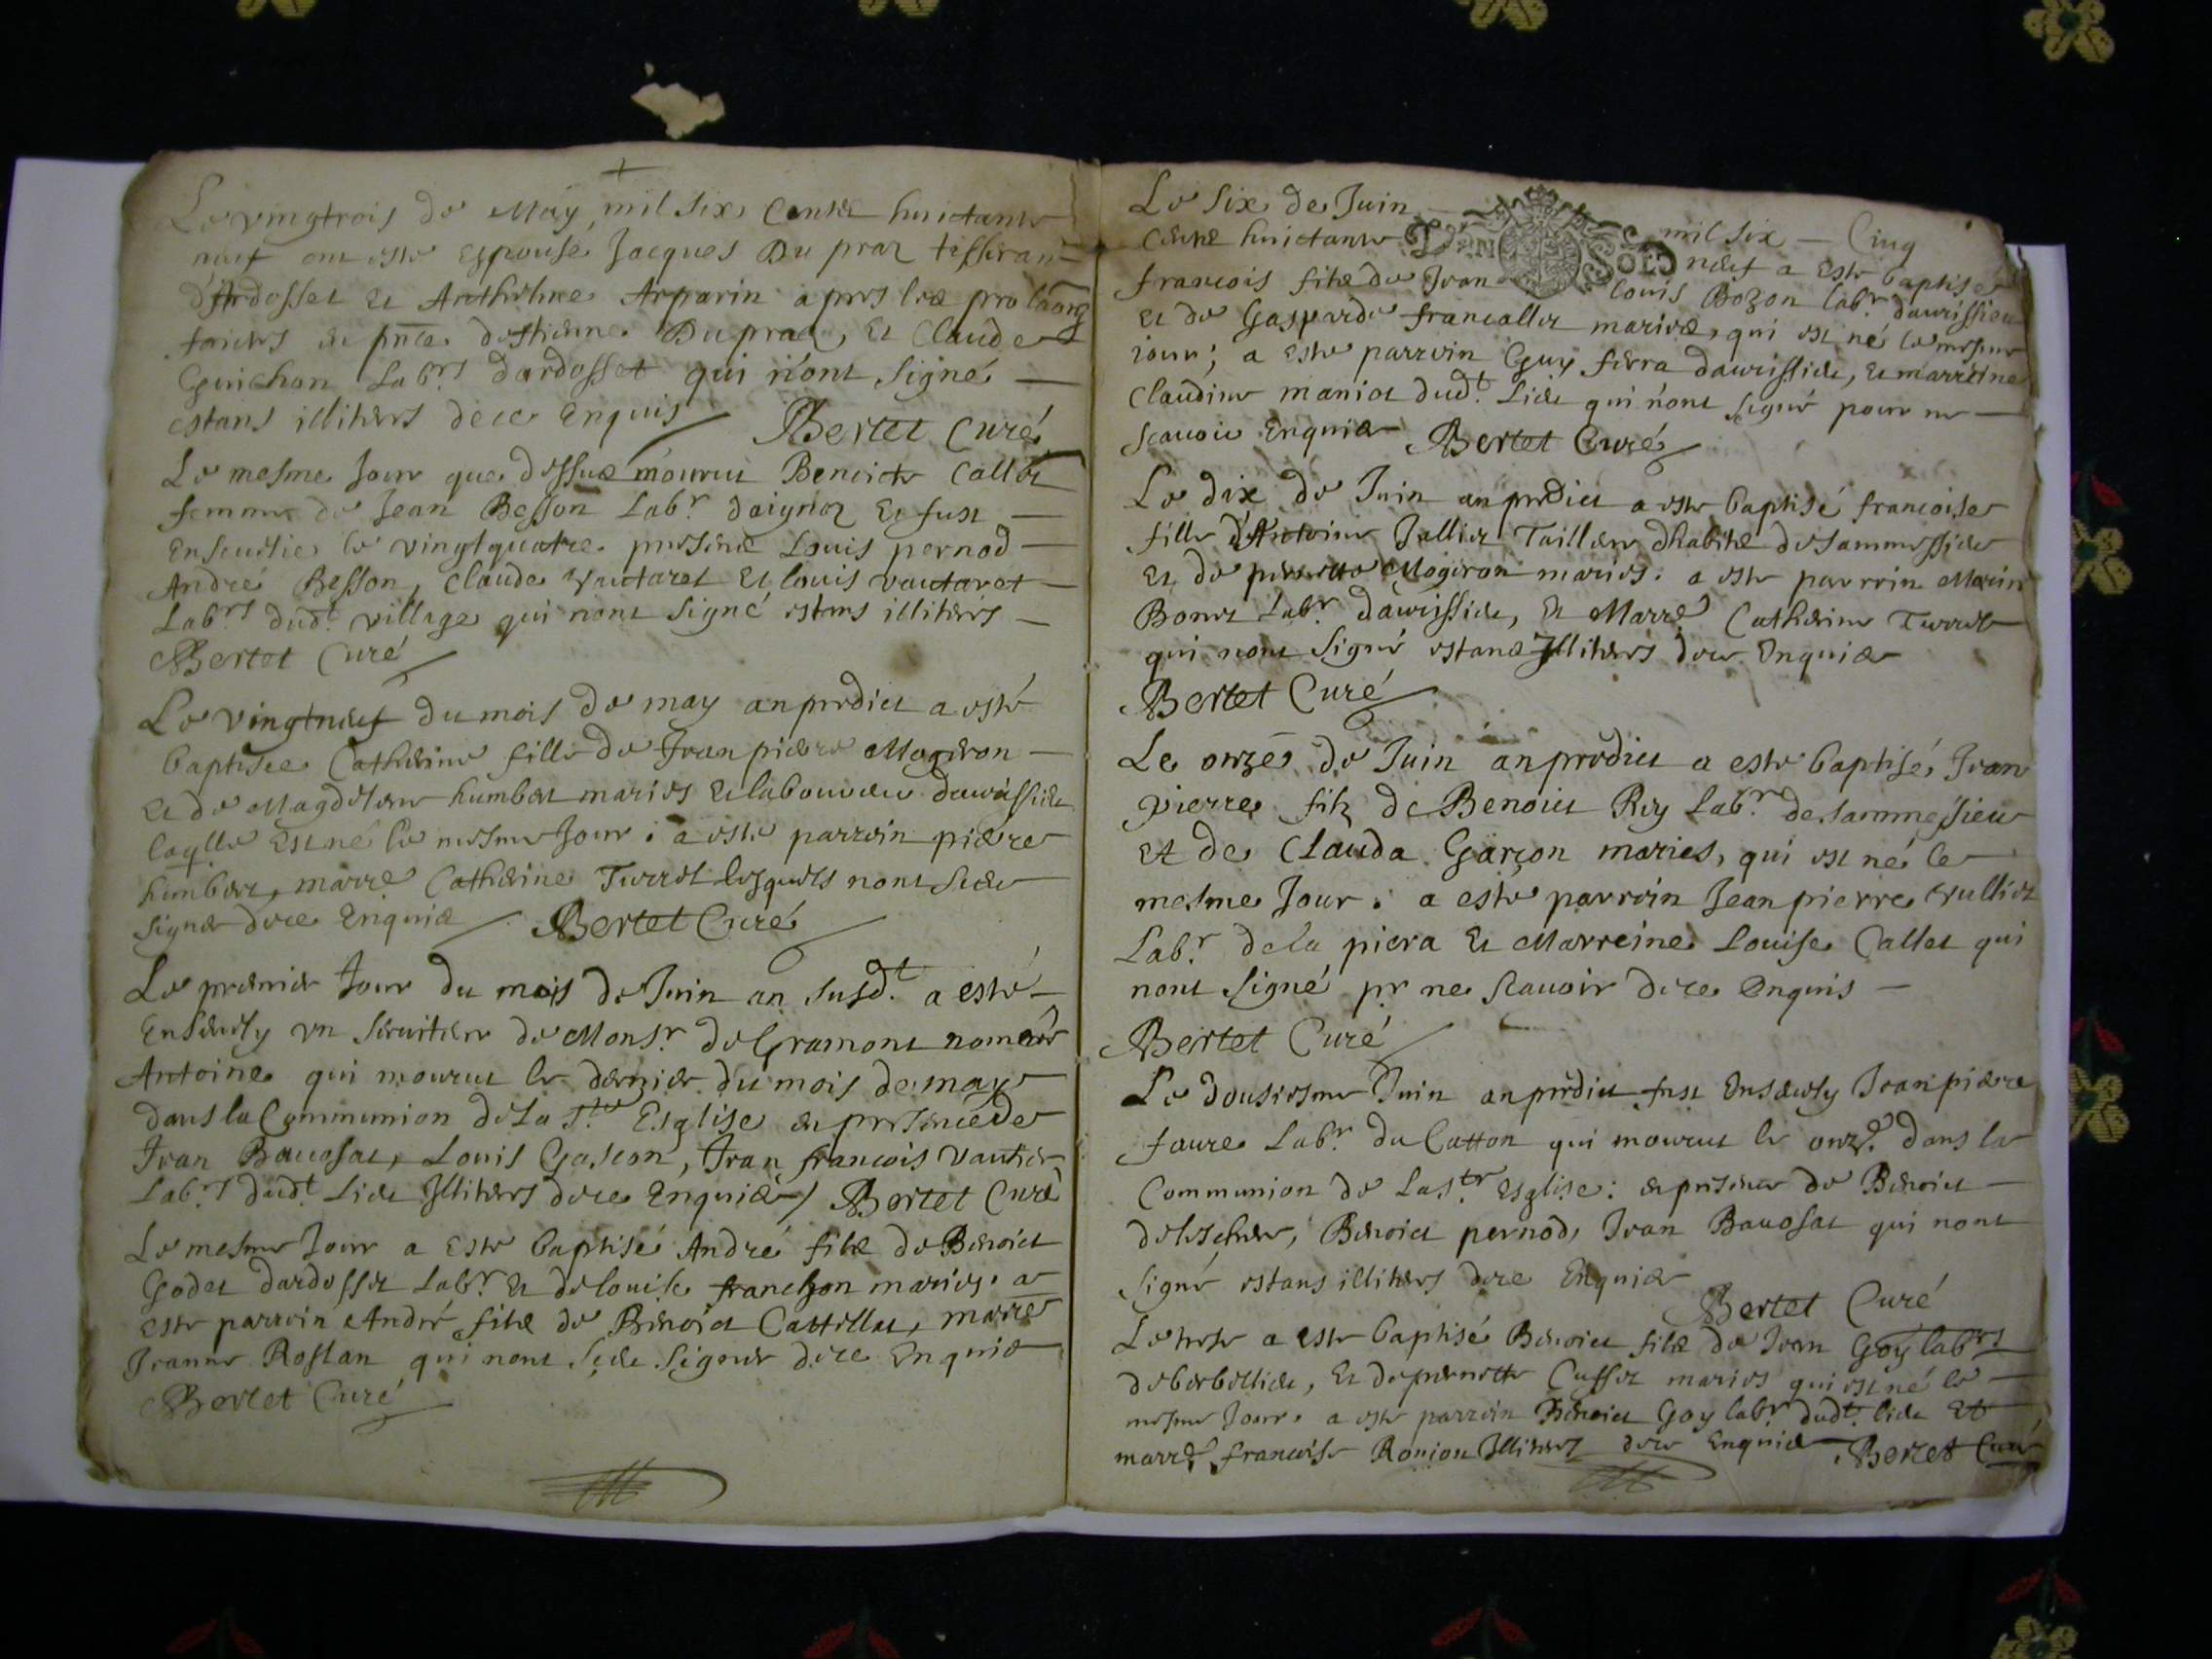 Le vingtrois de May mil six cents huictante
neuf ont esté espousé Jacques Du praz tisseran
d'Ardosset et Anthelme Arparin apres les proclaõnz
faictes en pñce destienne Dupraz, et Claude
Guichon Labrs dardosset qui n'ont signé
estans illiters de ce Enquis Bertet Curé
Le mesme Jour que dessus mourut Benoicte Callet
femme de Jean Besson Labr daignoz et fust
Ensevelie le vingtquatre presens Louis pernod
André Besson, Claude vautaret et louis vautaret
Labrs dudt village qui nont signé estans illiters
Bertet Curé
Le vingtneuf du mois de may an predict a esté
baptisee Catherine fille de Jean pierre Mogeron
et de Magdelene humbert mariés et laboureu
laqlle est né le mesme Jour : a esté parrein pierre
humbert, marre Catherine Turret lesquels nont sceu
signer de ce Enquis Bertet Curé
Le premier Jour du mois de Juin an susdt a esté
Ensevely un serviteur de Monsr de Gramont nomeé
Antoine qui mourut le dernier du mois de may
dans la Communion de la Ste Esglise en presence de
Jean Bavosat, Louis Gascon, Jean francois vautier
Labrs dudt Lieu Illiters de ce Enquis / Bertet Curé
Le mesme Jour a esté baptisé André filz de Benoict
Godet dardosset Labr et de louise franchon mariez a
esté parrein André filz de Benoict Cattillat, marre
Jeanne Rostan qui nont sceu signer de ce Enquis
Bertet Curé
Le six de Juin mil six Cinq
cents huictante neuf a esté baptisé
francois filz de Jean louis Bozon labr daurissieu
et de Gasparde francallet mariés, qui est né le mesme
iour ; a esté parrein Guy fierra daurissieu, et marreine
Claudine maniot dudt Lieu qui n'ont signé pour ne
scauoir Enquis Bertet Curé
Le dix de Juin an predict a esté baptisé francoise
fille d'Antoine Jallier Tailleur dhabits de sammessieu
et de pernette Mogeron mariés : a esté parrein Marin
Bonet Labr daurissieu, et Marre Catherine Turret
qui nont signé estans Illiters de ce Enquis
Bertet Curé
Le onze de Juin an predict a esté baptisé Jean
pierre filz de Benoict Rey Labr de sammessieu
et de Clauda Garçon mariés, qui est né le
mesme Jour : a esté parrein Jean pierre vulliet
Labr de la piera et Marreine Louise Callet qui
nont signé pr ne scauoir de ce Enquis
Bertet Curé
Le dousiesme Juin an predict fust Ensevely Jean pierre
faure Labr du Catton qui mourut le onze dans la
Communion de la ste Esglise : en presence de Benoict
Benoict pernod, Jean Bavosat qui nont
signé estans illiters de ce Enquis
Bertet Curé
Le treze a esté baptisé Benoict filz de Jean Goy labrs
de berbellieu, et de pernette Cusset mariés qui est né le
mesme Jour : a esté parrein Benoict Goy labr dudt lieu et
marre francoise Ronjon Illiters de ce Enquis Bertet Curé